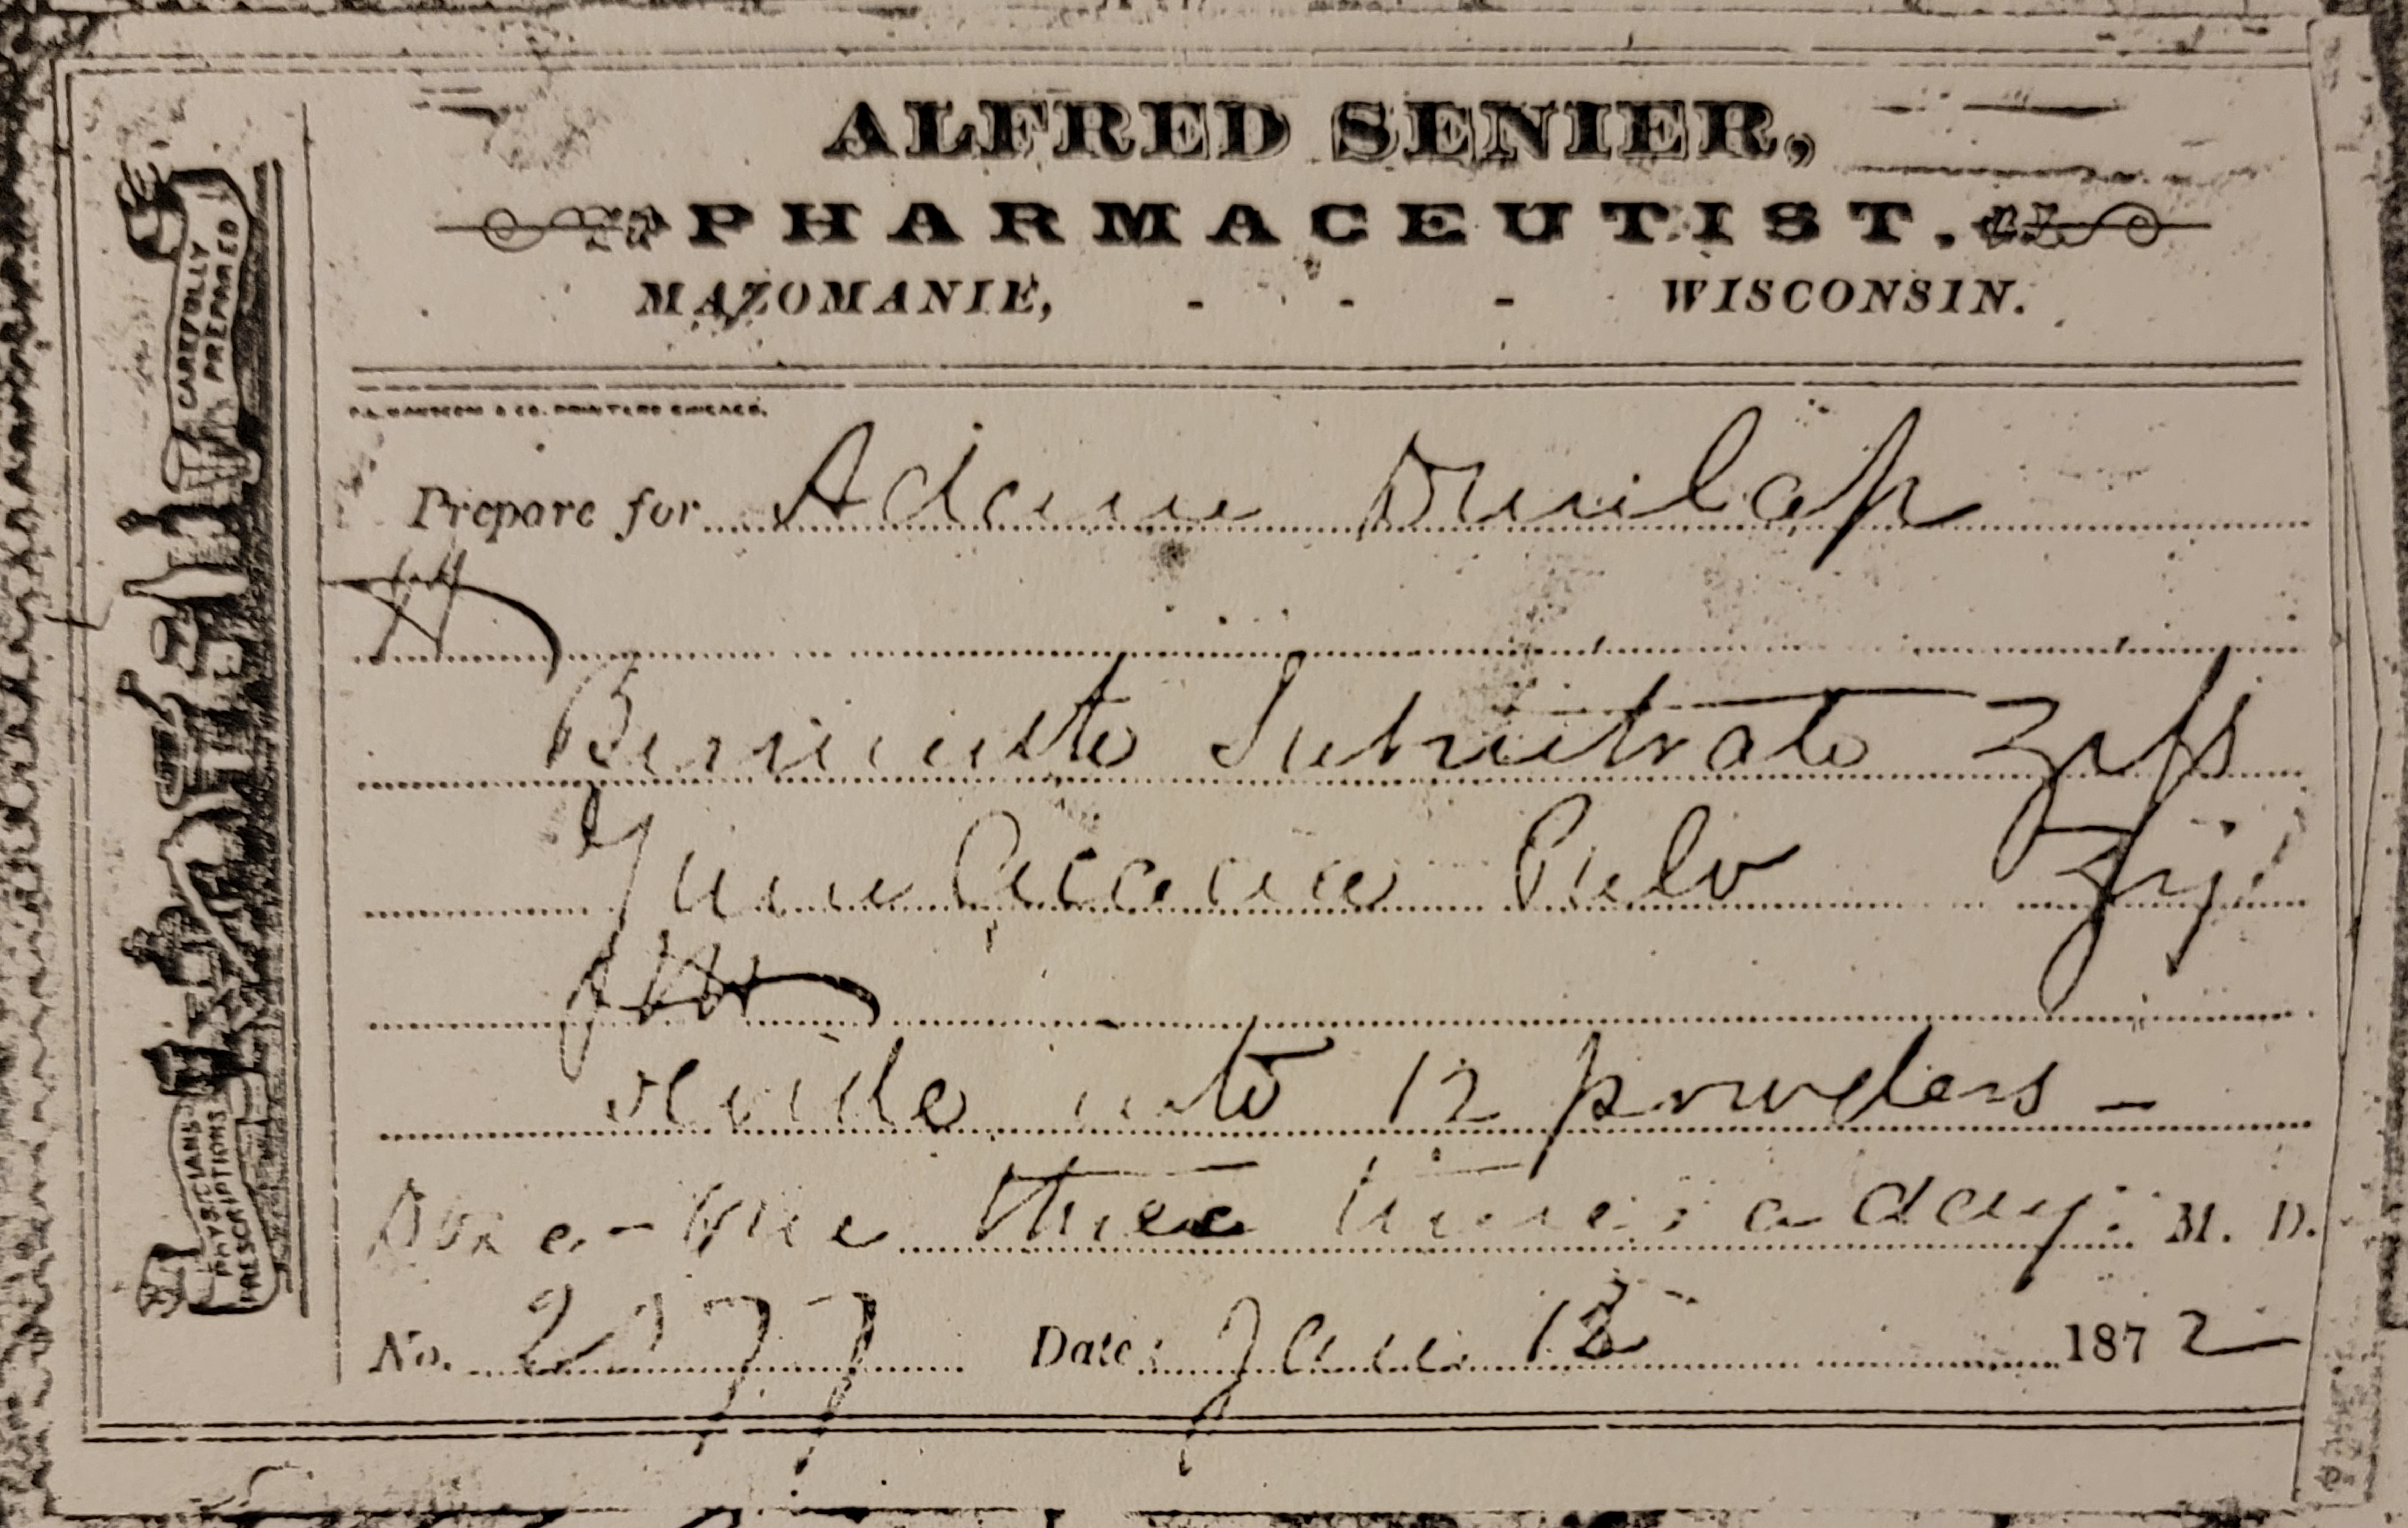 ALFRED SENIER,
PHARMACEUTIST.
MAZOMANIE, - - - WISCONSIN.
CO. PRINTERS CHICAGO.
Prepare for Adam Dunlap
℞
Bismuth Subnitrate ʒ
Gum Acacia Pulv ʒij
divide into 12 powders -
Dose - One three times a day. M. D.
No. 2177 Date Jan 1872
CAREFULLY
PREPARED
PHYSICIANS
PRESCRIPTIONS